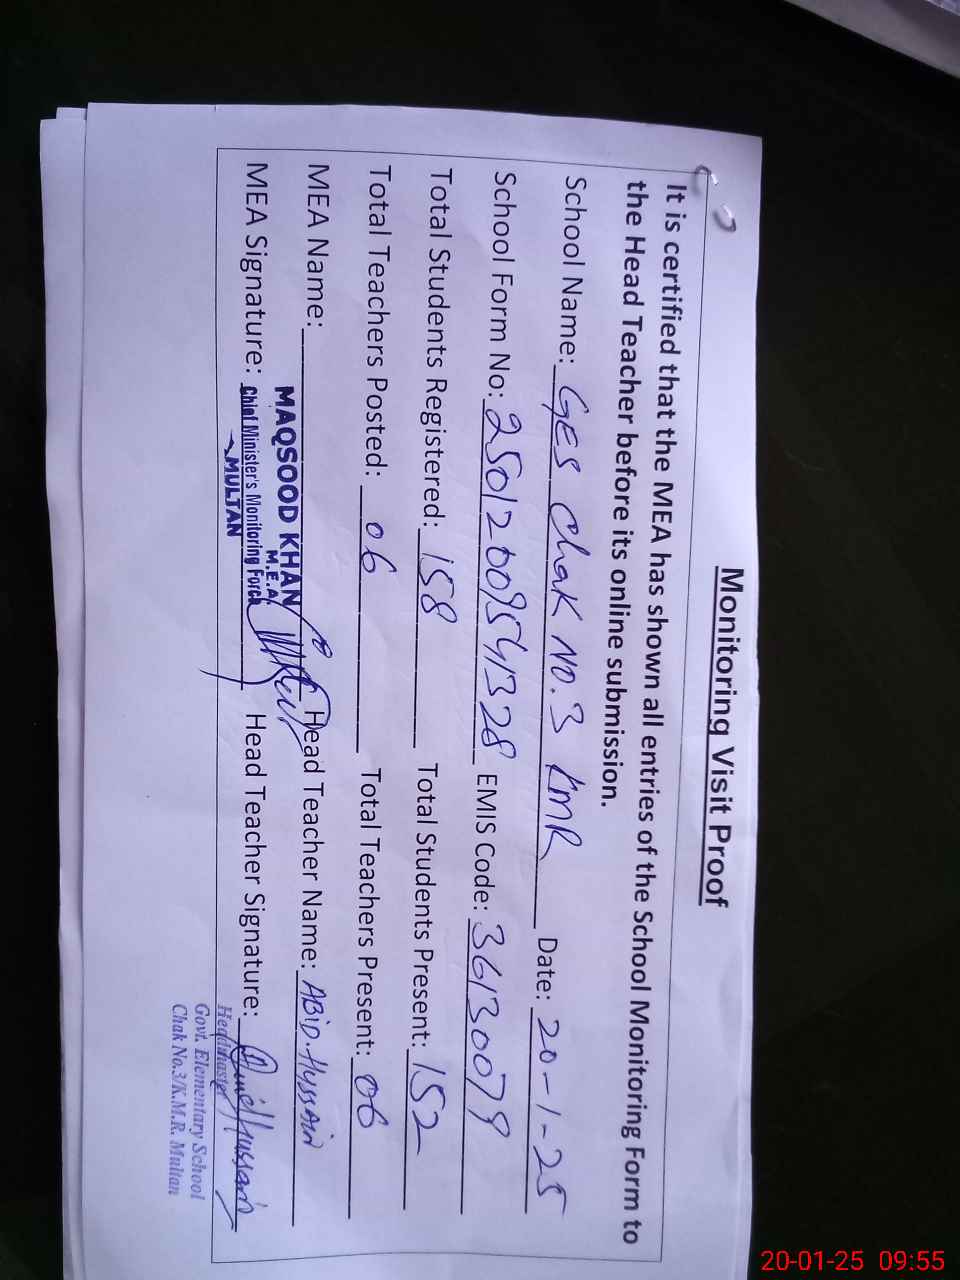 Monitoring Visit Proof
It is certified that the MEA has shown all entries of the School Monitoring Form to
the Head Teacher before its online submission.
School Name: GES Chak No.3 KMR Date: 20-1-25
School Form No: 25012009541328 EMIS Code: 36130079
Total Students Registered: 158 Total Students Present: 152
Total Teachers Posted: 06 Total Teachers Present: 06
MEA Name: MAQSOOD KHAN Head Teacher Name: ABID.HUSSAIN
M.E.A
MEA Signature: Chief Minister's Monitoring Force Head Teacher Signature:
MULTAN
Headmaster
Govt. Elementary School
Chak No.3/K.M.R. Multan
20-01-25 09:55